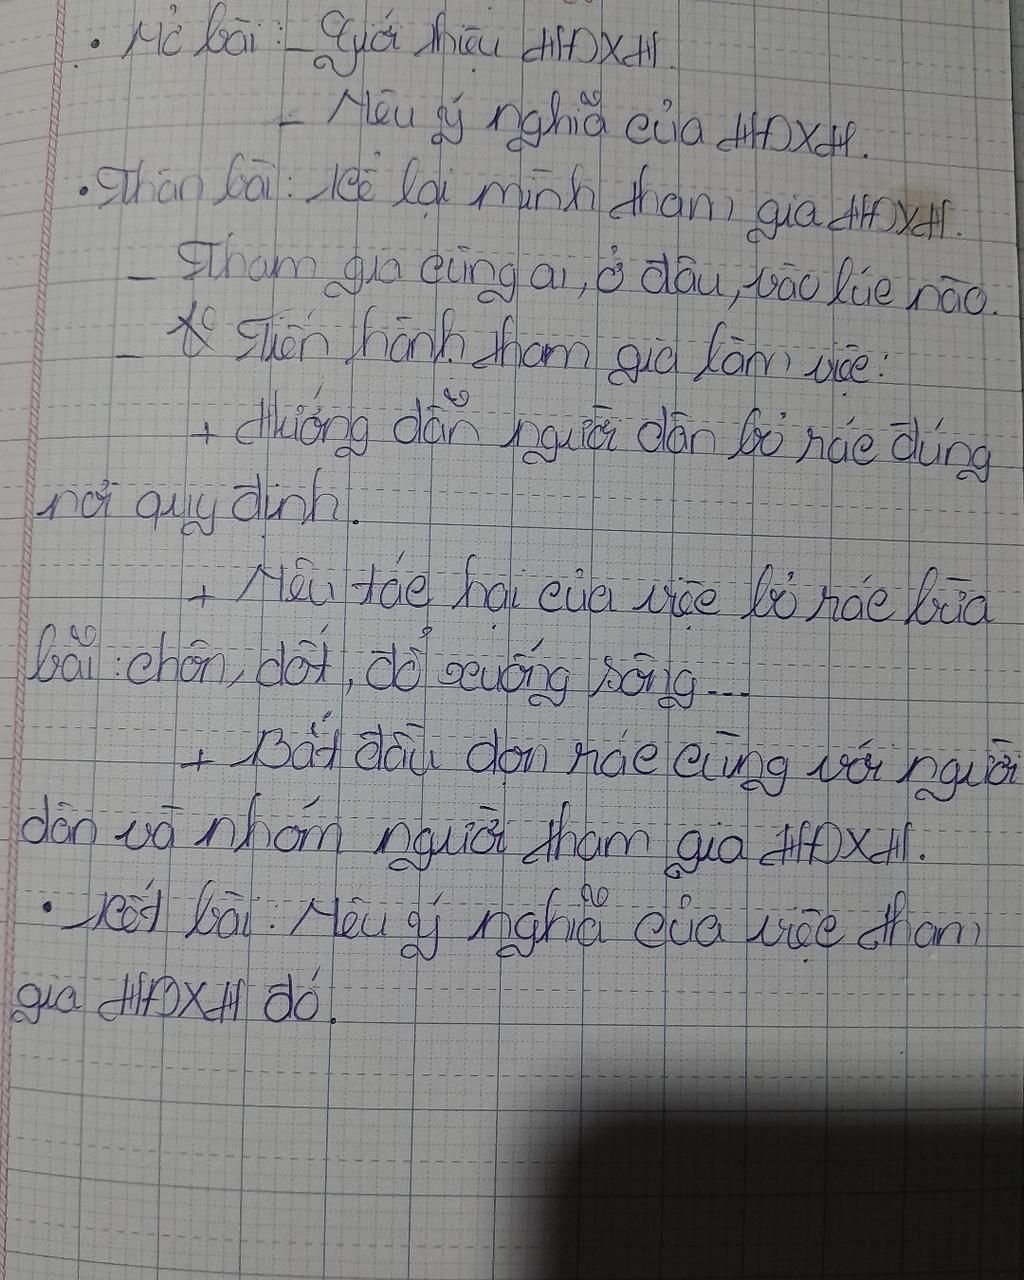 • Mở bài: - Giới thiệu HĐXH.
- Nêu ý nghĩa của HĐXH.
• Thân bài: Kể lại mình tham gia HĐXH.
- Tham gia cùng ai, ở đâu, vào lúc nào.
- Tiến hành tham gia làm việc:
+ Hướng dẫn người dân bỏ rác đúng
nơi quy định.
+ Nêu tác hại của việc bỏ rác bừa
bãi: chôn, đốt, đổ xuống sông...
+ Bắt đầu dọn rác cùng với người
dân và nhóm người tham gia HĐXH.
• Kết bài: Nêu ý nghĩa của việc tham
gia HĐXH đó.